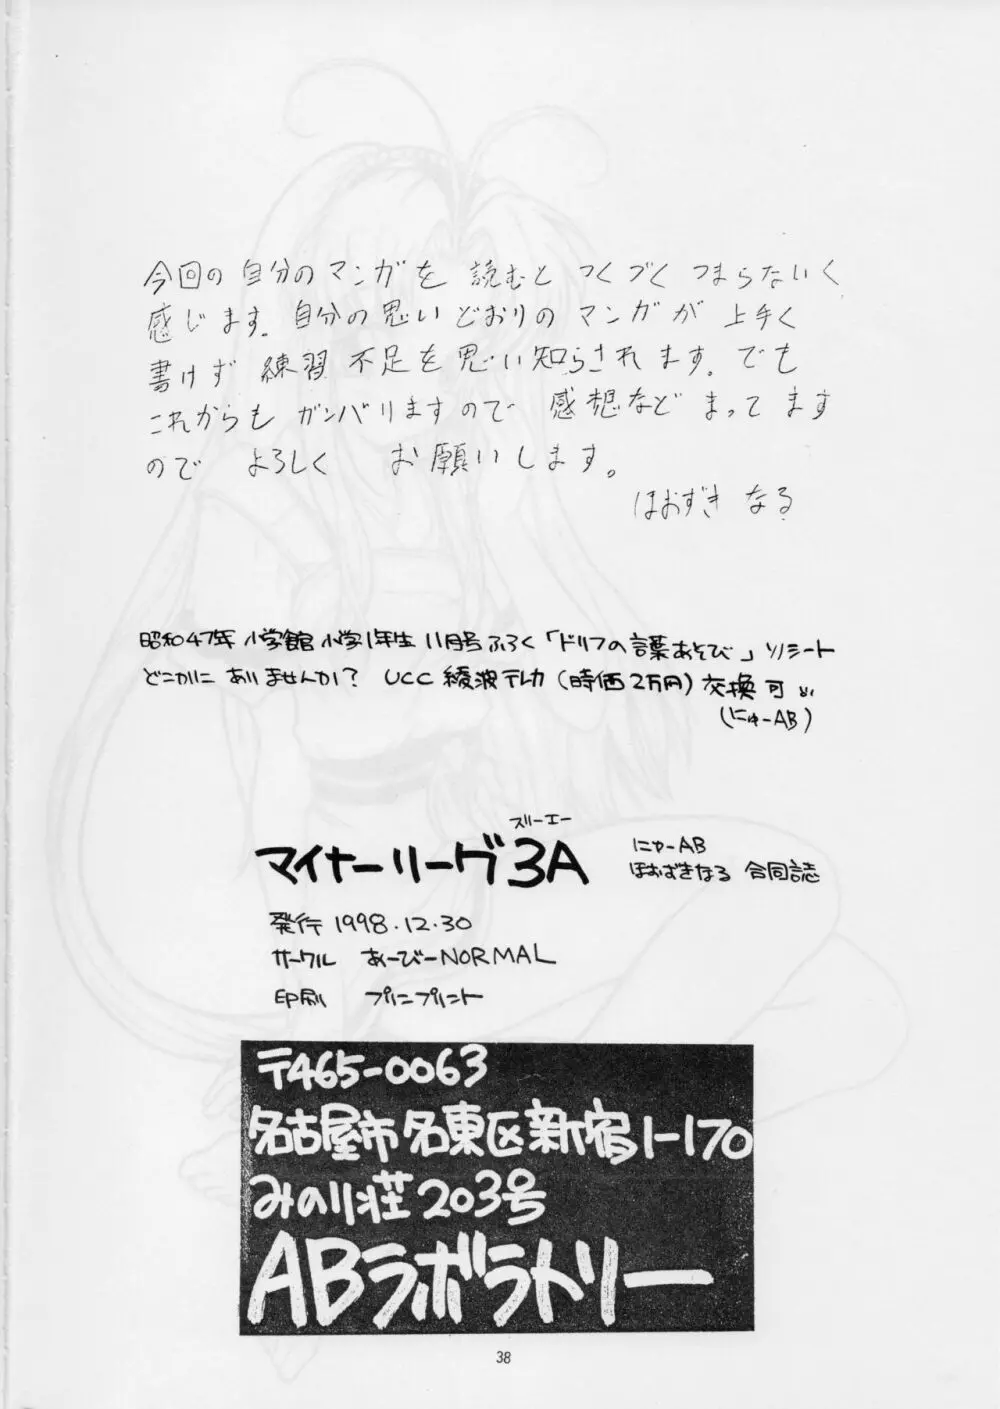 今回の自分のマンガを 読むと つくづく つまらないく
感じます。自分の思いどおりの マンガが 上手く
書けず 練習 不足を思い知らされます。でも
これからも ガンバリますので 感想など まってます
ので よろしく お願いします。
ほおずき なる
昭和47年 小学館 小学1年生 11月号 ふろく「ドリフの言葉あそび」ソノシート
どこかに ありませんか? UCC 綾波テレカ (時価2万円) 交換 可
(にゅーAB)
スリーエー
マイナーリーグ3A
にゅーAB
ほおずきなる 合同誌
発行 1998.12.30
サークル あーびーNORMAL
印刷 プリニプリント
〒465-0063
名古屋市名東区新宿1-170
みのり荘203号
ABラボラトリー
38